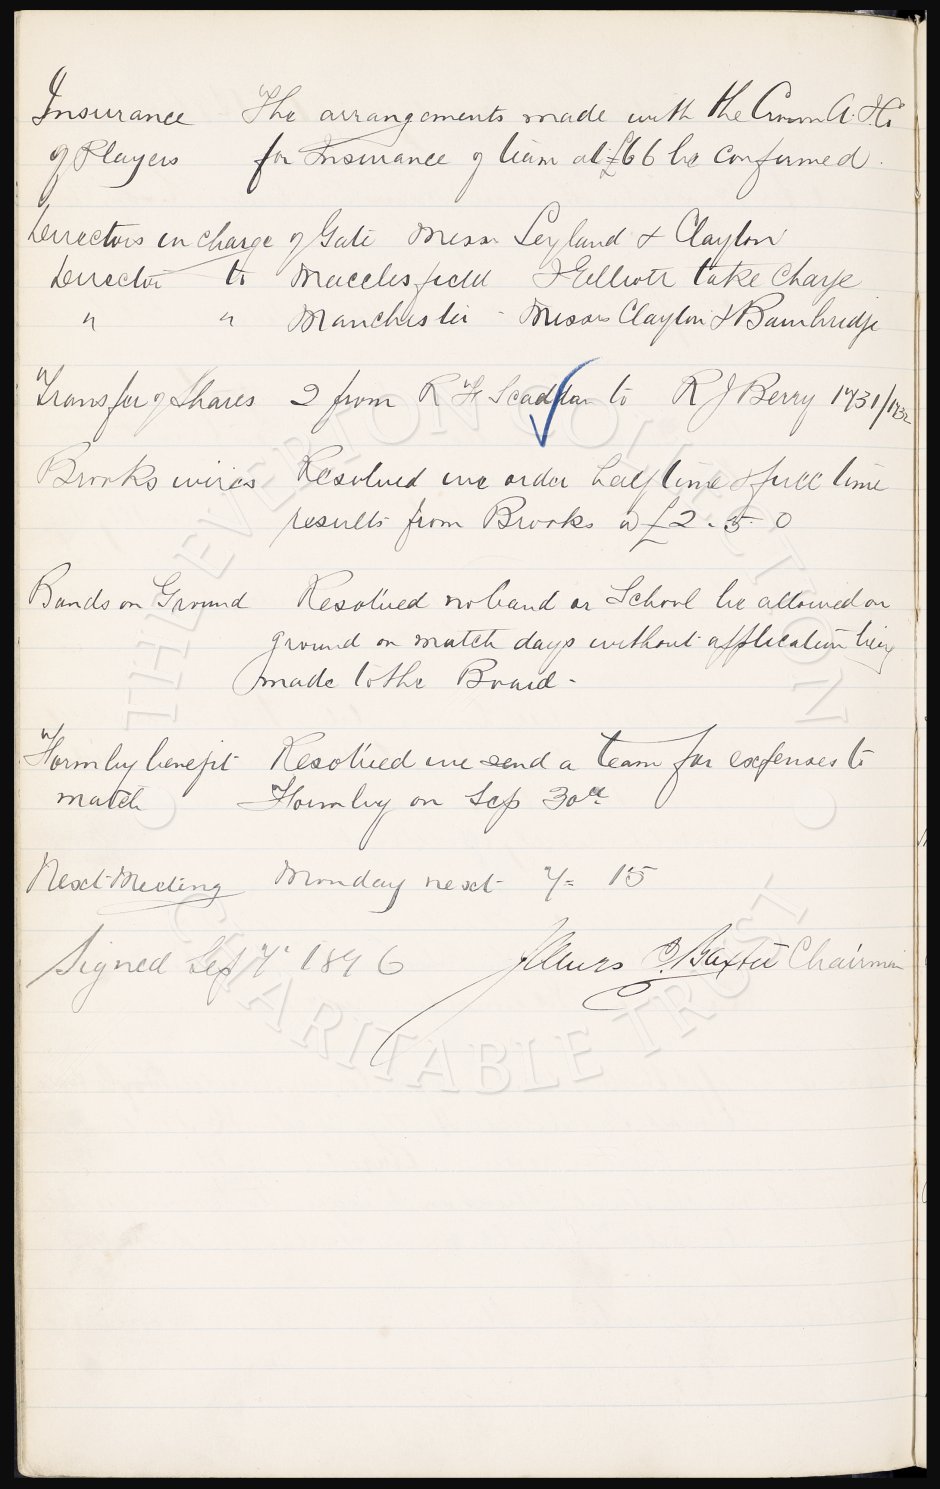 Insurance The arrangements made with the Crown A. Co
of Players for Insurance of team at £66 be confirmed.
Directors in charge of Gate Messrs Leyland & Clayton
Director to Macclesfield J Elliott take charge
" " Manchester - Messrs Clayton & Bainbridge
Transfer of Shares 2 from R H Scaddan to R J Berry 1731/1732
Brooks wires Resolved we order half time & full time
results from Brooks @ £2.5.0
Bands on Ground Resolved no band or School be allowed on
ground on match days without application being
made to the Board -
Formby benefit Resolved we send a team for expenses to
match Formby on Sep 30th
Next Meeting Monday next 7= 15
Signed Sep 7th 1896 James C. Baxter Chairman
THE EVERTON COLLECTION
CHARITABLE TRUST